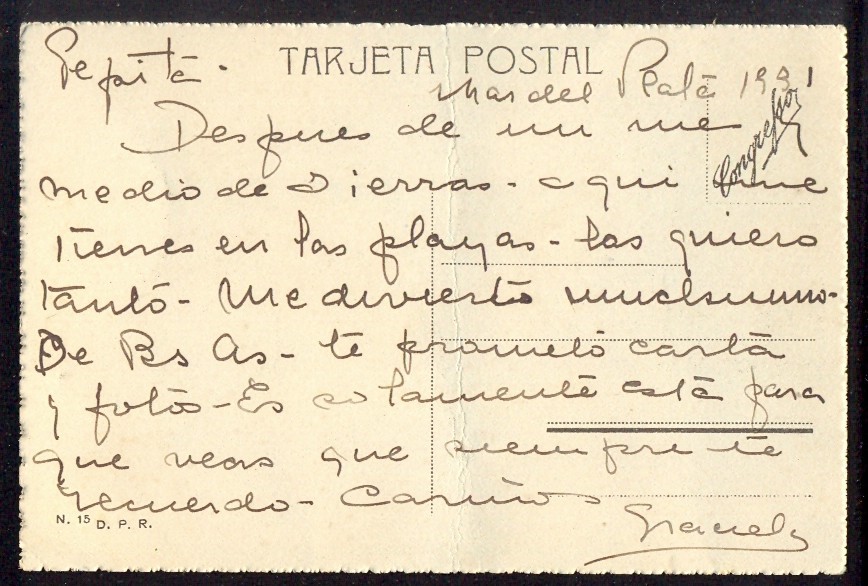 TARJETA POSTAL
Pepita.
Mar del Plata 1931
Congreso
Despues de un mes
medio de Sierras - aqui me
tienes en las playas - las quiero
tanto - Me divierto muchisimo -
De Bs As - te prometo carta
y fotos - Es solamente esta para
que veas que siempre te
recuerdo - Cariños
Graciela
N. 15 D. P. R.